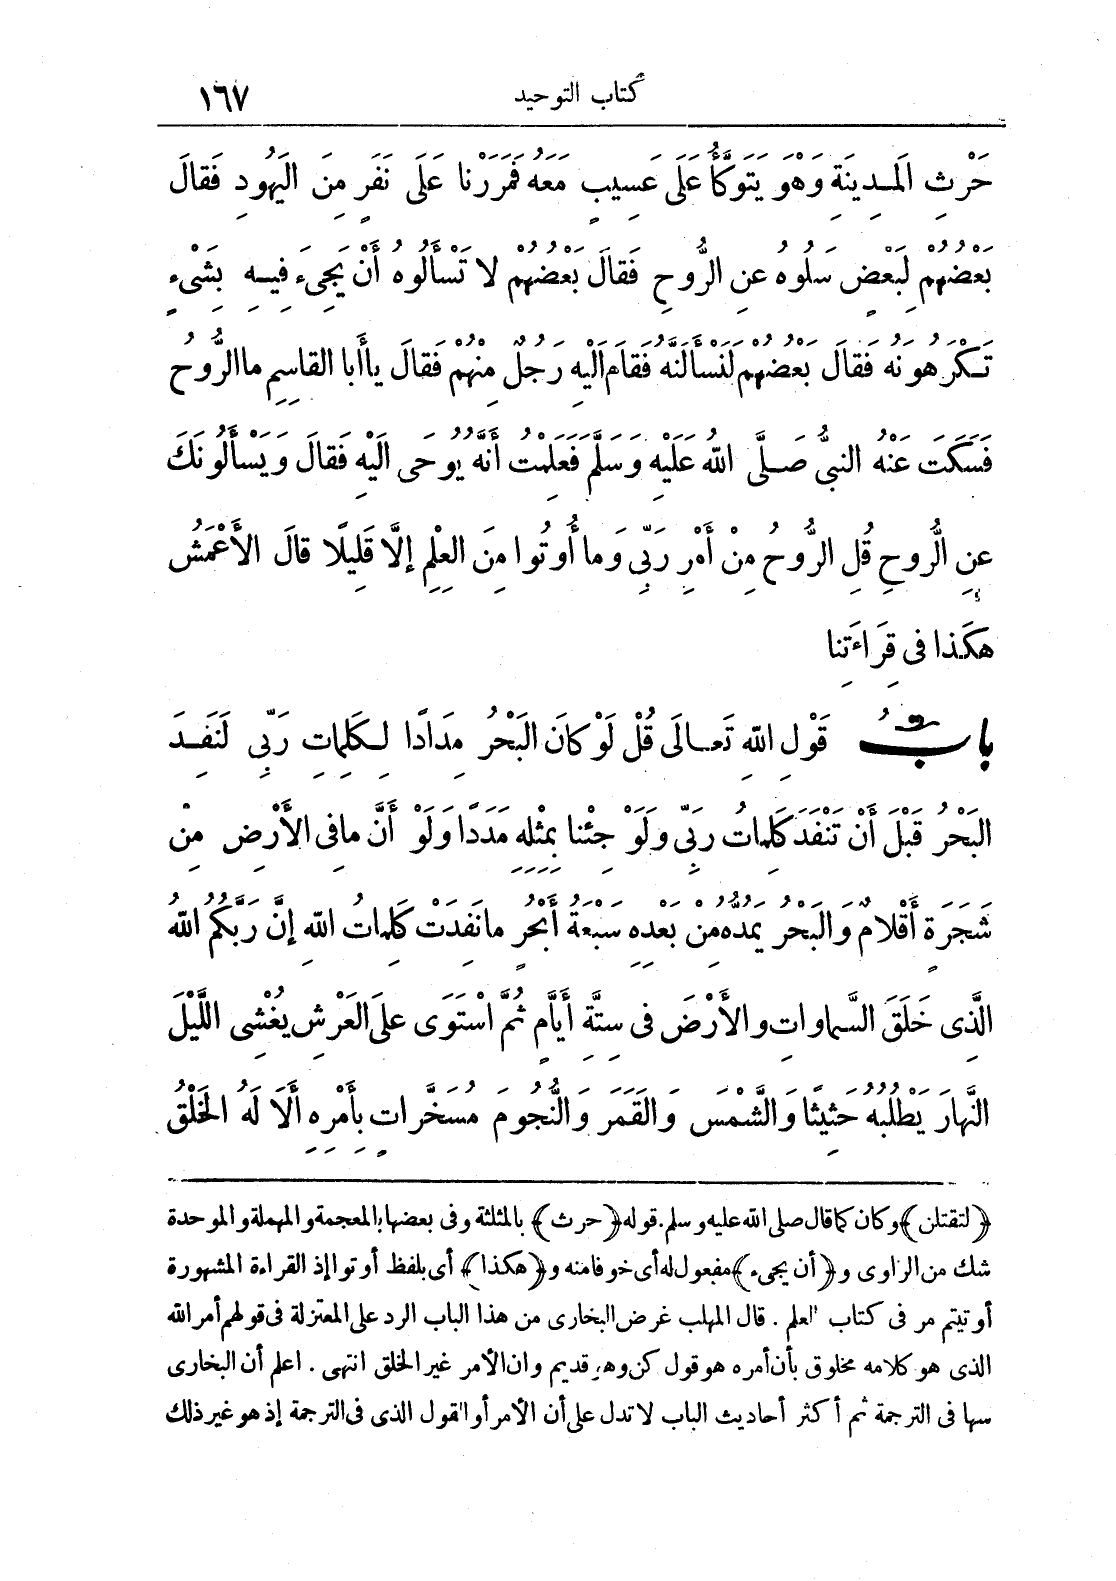 كتاب التوحيد ١٦٧
حَرْثِ الْمَدِينَةِ وَهْوَ يَتَوَكَّأُ عَلَى عَسِيبٍ مَعَهُ فَمَرَرْنا عَلَى نَفَرٍ مِنَ الْيَهُودِ فَقَالَ
بَعْضُهُمْ لِبَعْضٍ سَلُوهُ عَنِ الرُّوحِ فَقَالَ بَعْضُهُمْ لا تَسْأَلُوهُ أَنْ يَجِىءَ فِيهِ بِشَىْءٍ
تَكْرَهُونَهُ فَقَالَ بَعْضُهُمْ لَنَسْأَلَنَّهُ فَقَامَ الَيْهِ رَجُلٌ مِنْهُمْ فَقَالَ ياأَبا القاسِمِ ماالرُّوحُ
فَسَكَتَ عَنْهُ النبىُّ صَلَّى اللهُ عَلَيْهِ وَسَلَّمَ فَعَلِمْتُ أَنَّهُ يُوحَى الَيْهِ فَقَالَ وَيَسْأَلُونَكَ
عَنِ الرُّوحِ قُلِ الرُّوحُ مِنْ أَمْرِ رَبِّى وَما أُوتُوا مِنَ العِلْمِ إلَّا قَلِيلًا قالَ الأَعْمَشُ
هكَذا فى قِرَاءَتِنا
بابُ قَوْلِ اللهِ تَعالَى قُلْ لَوْ كانَ البَحْرُ مِدَادًا لِكَلِماتِ رَبِّى لَنَفِدَ
البَحْرُ قَبْلَ أَنْ تَنْفَدَ كَلِماتُ رَبِّى وَلَوْ جِئْنا بِمِثْلِهِ مَدَدًا وَلَوْ أَنَّ مافِى الأَرْضِ مِنْ
شَجَرَةٍ أَقْلامٌ وَالبَحْرُ يَمُدُّهُ مِنْ بَعْدِهِ سَبْعَةُ أَبْحُرٍ مانَفِدَتْ كَلِماتُ اللهِ إنَّ رَبَّكُمُ اللهُ
الَّذِى خَلَقَ السَّماواتِ والأَرْضَ فى سِتَّةِ أَيَّامٍ ثُمَّ اسْتَوَى علَى العَرْشِ يُغْشِى اللَّيْلَ
النَّهارَ يَطْلُبُهُ حَثِيثًا وَالشَّمْسَ وَالقَمَرَ وَالنُّجُومَ مُسَخَّراتٍ بِأَمْرِهِ أَلَا لَهُ الخَلْقُ
﴿لتقتلن﴾ وكان كما قال صلى الله عليه وسلم. قوله ﴿حرث﴾ بالمثلثة وفى بعضها بالمعجمة والمهملة والموحدة
شك من الراوى و﴿أن يجىء﴾ مفعول له أى خوفا منه و﴿هكذا﴾ أى بلفظ أوتوا إذ القراءة المشهورة
أوتيتم مر فى كتاب العلم . قال المهلب غرض البخارى من هذا الباب الرد على المعتزلة فى قولهم أمر الله
الذى هو كلامه مخلوق بأن أمره هو قول كن وهو قديم وان الأمر غير الخلق انتهى . اعلم أن البخارى
سها فى الترجمة ثم أكثر أحاديث الباب لا تدل على أن الأمر أو القول الذى فى الترجمة إذ هو غير ذلك